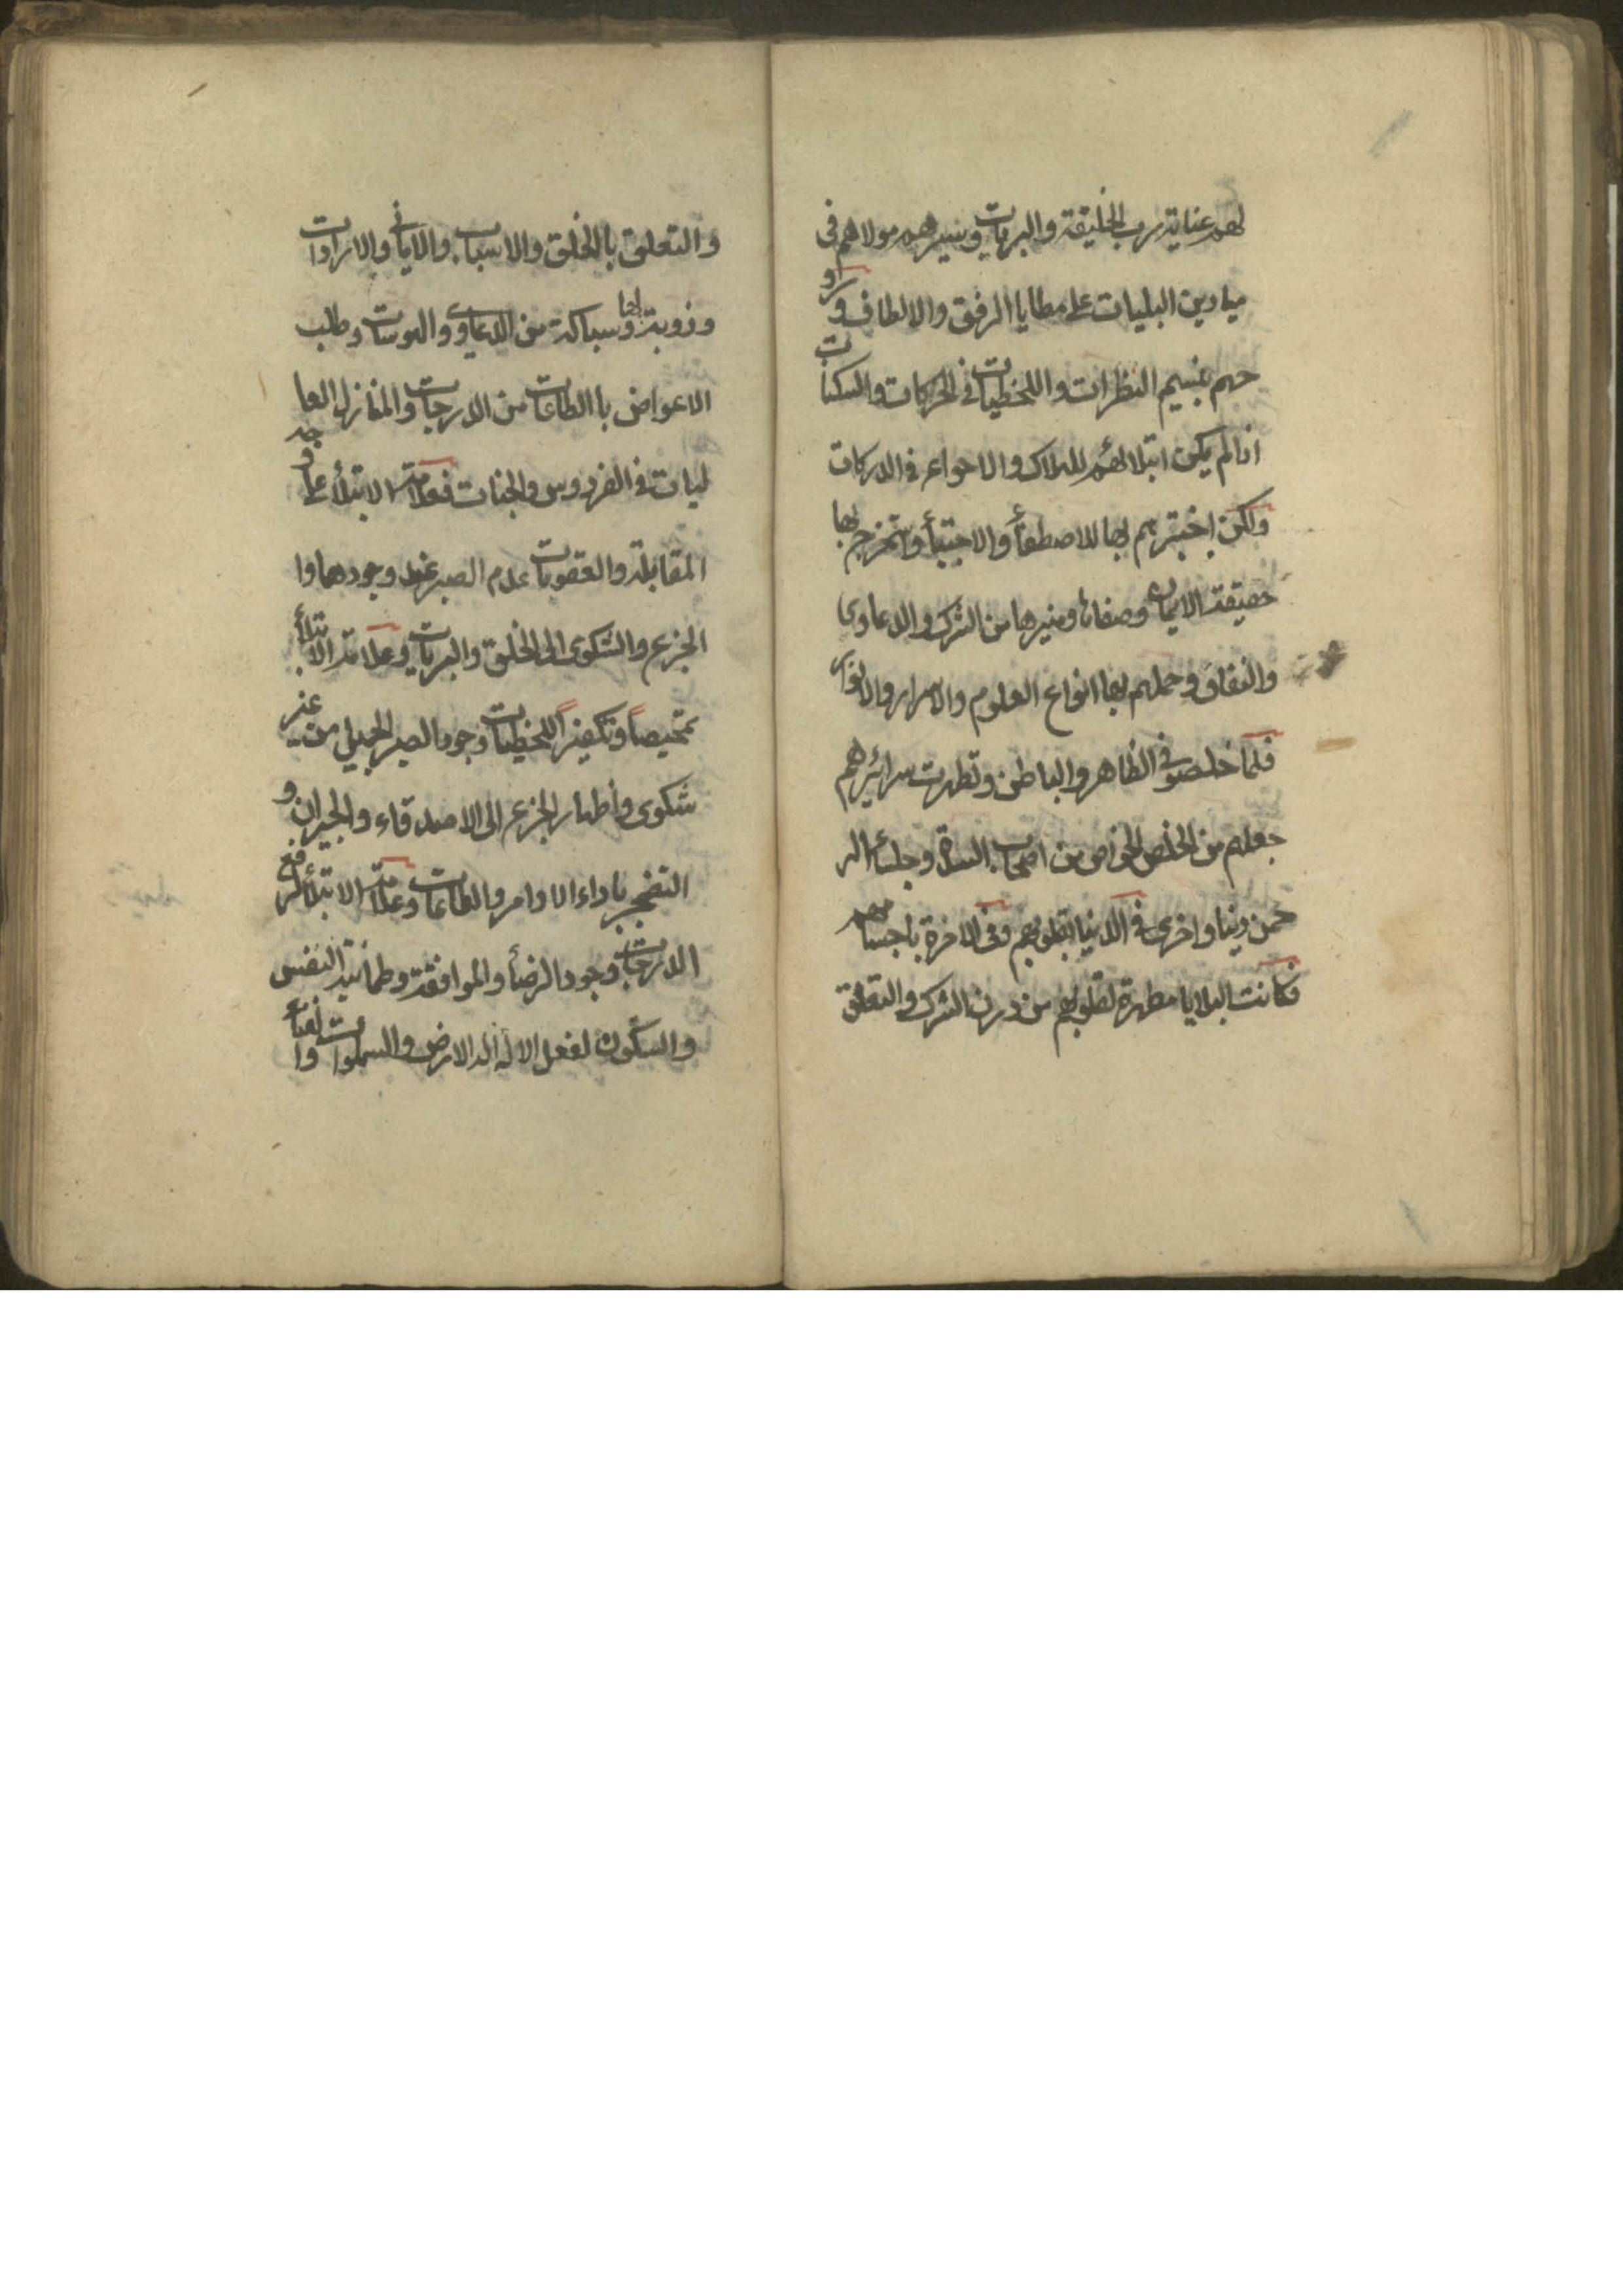 لهم عناية رب الخليقة والبريات وسيرهم مولاهم فى
ميادين البليات على مطايا الرفق والالطاف وروا
حهم بنسيم النظرات واللخطيات فى الحركات والسكنات
اذا لم يكن ابتلا لهم للهلاك والاهواء فى الدركات
ولكن اختبرهم بها للاصطفأ والاجتبأ واستخرج بها
حقيقة الايمان وصفاتها وميزها من الشرك والدعاوى
والنفاق وحملهم بها انواع العلوم والاسرار والانوار
فلما خلصو فى الظاهر والباطن وتطهرت سرائرهم
جعلهم من الخلص الخواص من اصحاب السدة وجلسأ الر
حمن دنيا واخرى فى الدنيا بقلوبهم وفى الاخرة باجسامهم
فكانت البلايا مطهرة لقلوبهم من درن الشرك والتعلق
والتعلق بالخلق والاسباب والامانى والارادات
وذوبة لها وسباكة من الدعاوى والهوسات وطلب
الاعواض باالطاعات من الدرجات والمنازل العا
ليات فى الفردوس والجنات فعلامة الابتلأ على وجه
المقابلة والعقوبات عدم الصبر عند وجودها وا
الجزع والشكوى الى الخلق والبريات وعلامة الابتلأ
تمحيصاً وتكفيراً للخطيات وجود الصبر الجميل من غير
شكوى واظهار الجزع الى الاصدقاء والجيران و
التضجر باداء الاوامر والطاعات وعلامة الابتلأ لرفع
الدرجات وجود الرضأ والموافقة وطمانية النفس
والسكون لفعل الاله اله الارض والسموات والفنأ